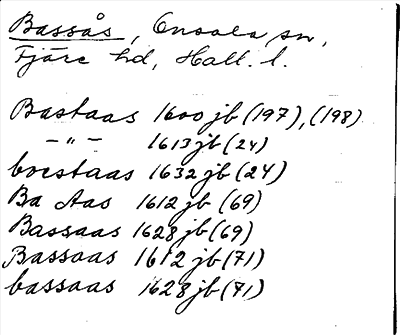 Bassås, Onsala sn,
Fjäre hd, Hall. l.
Bastaas 1600 jb (197), (198)
— " — 1613 jb (24)
boestaas 1632 jb (24)
Ba Aas 1612 jb (69)
Bassaas 1628 jb (69)
Bassaas 1612 jb (71)
bassaas 1628 jb (71)